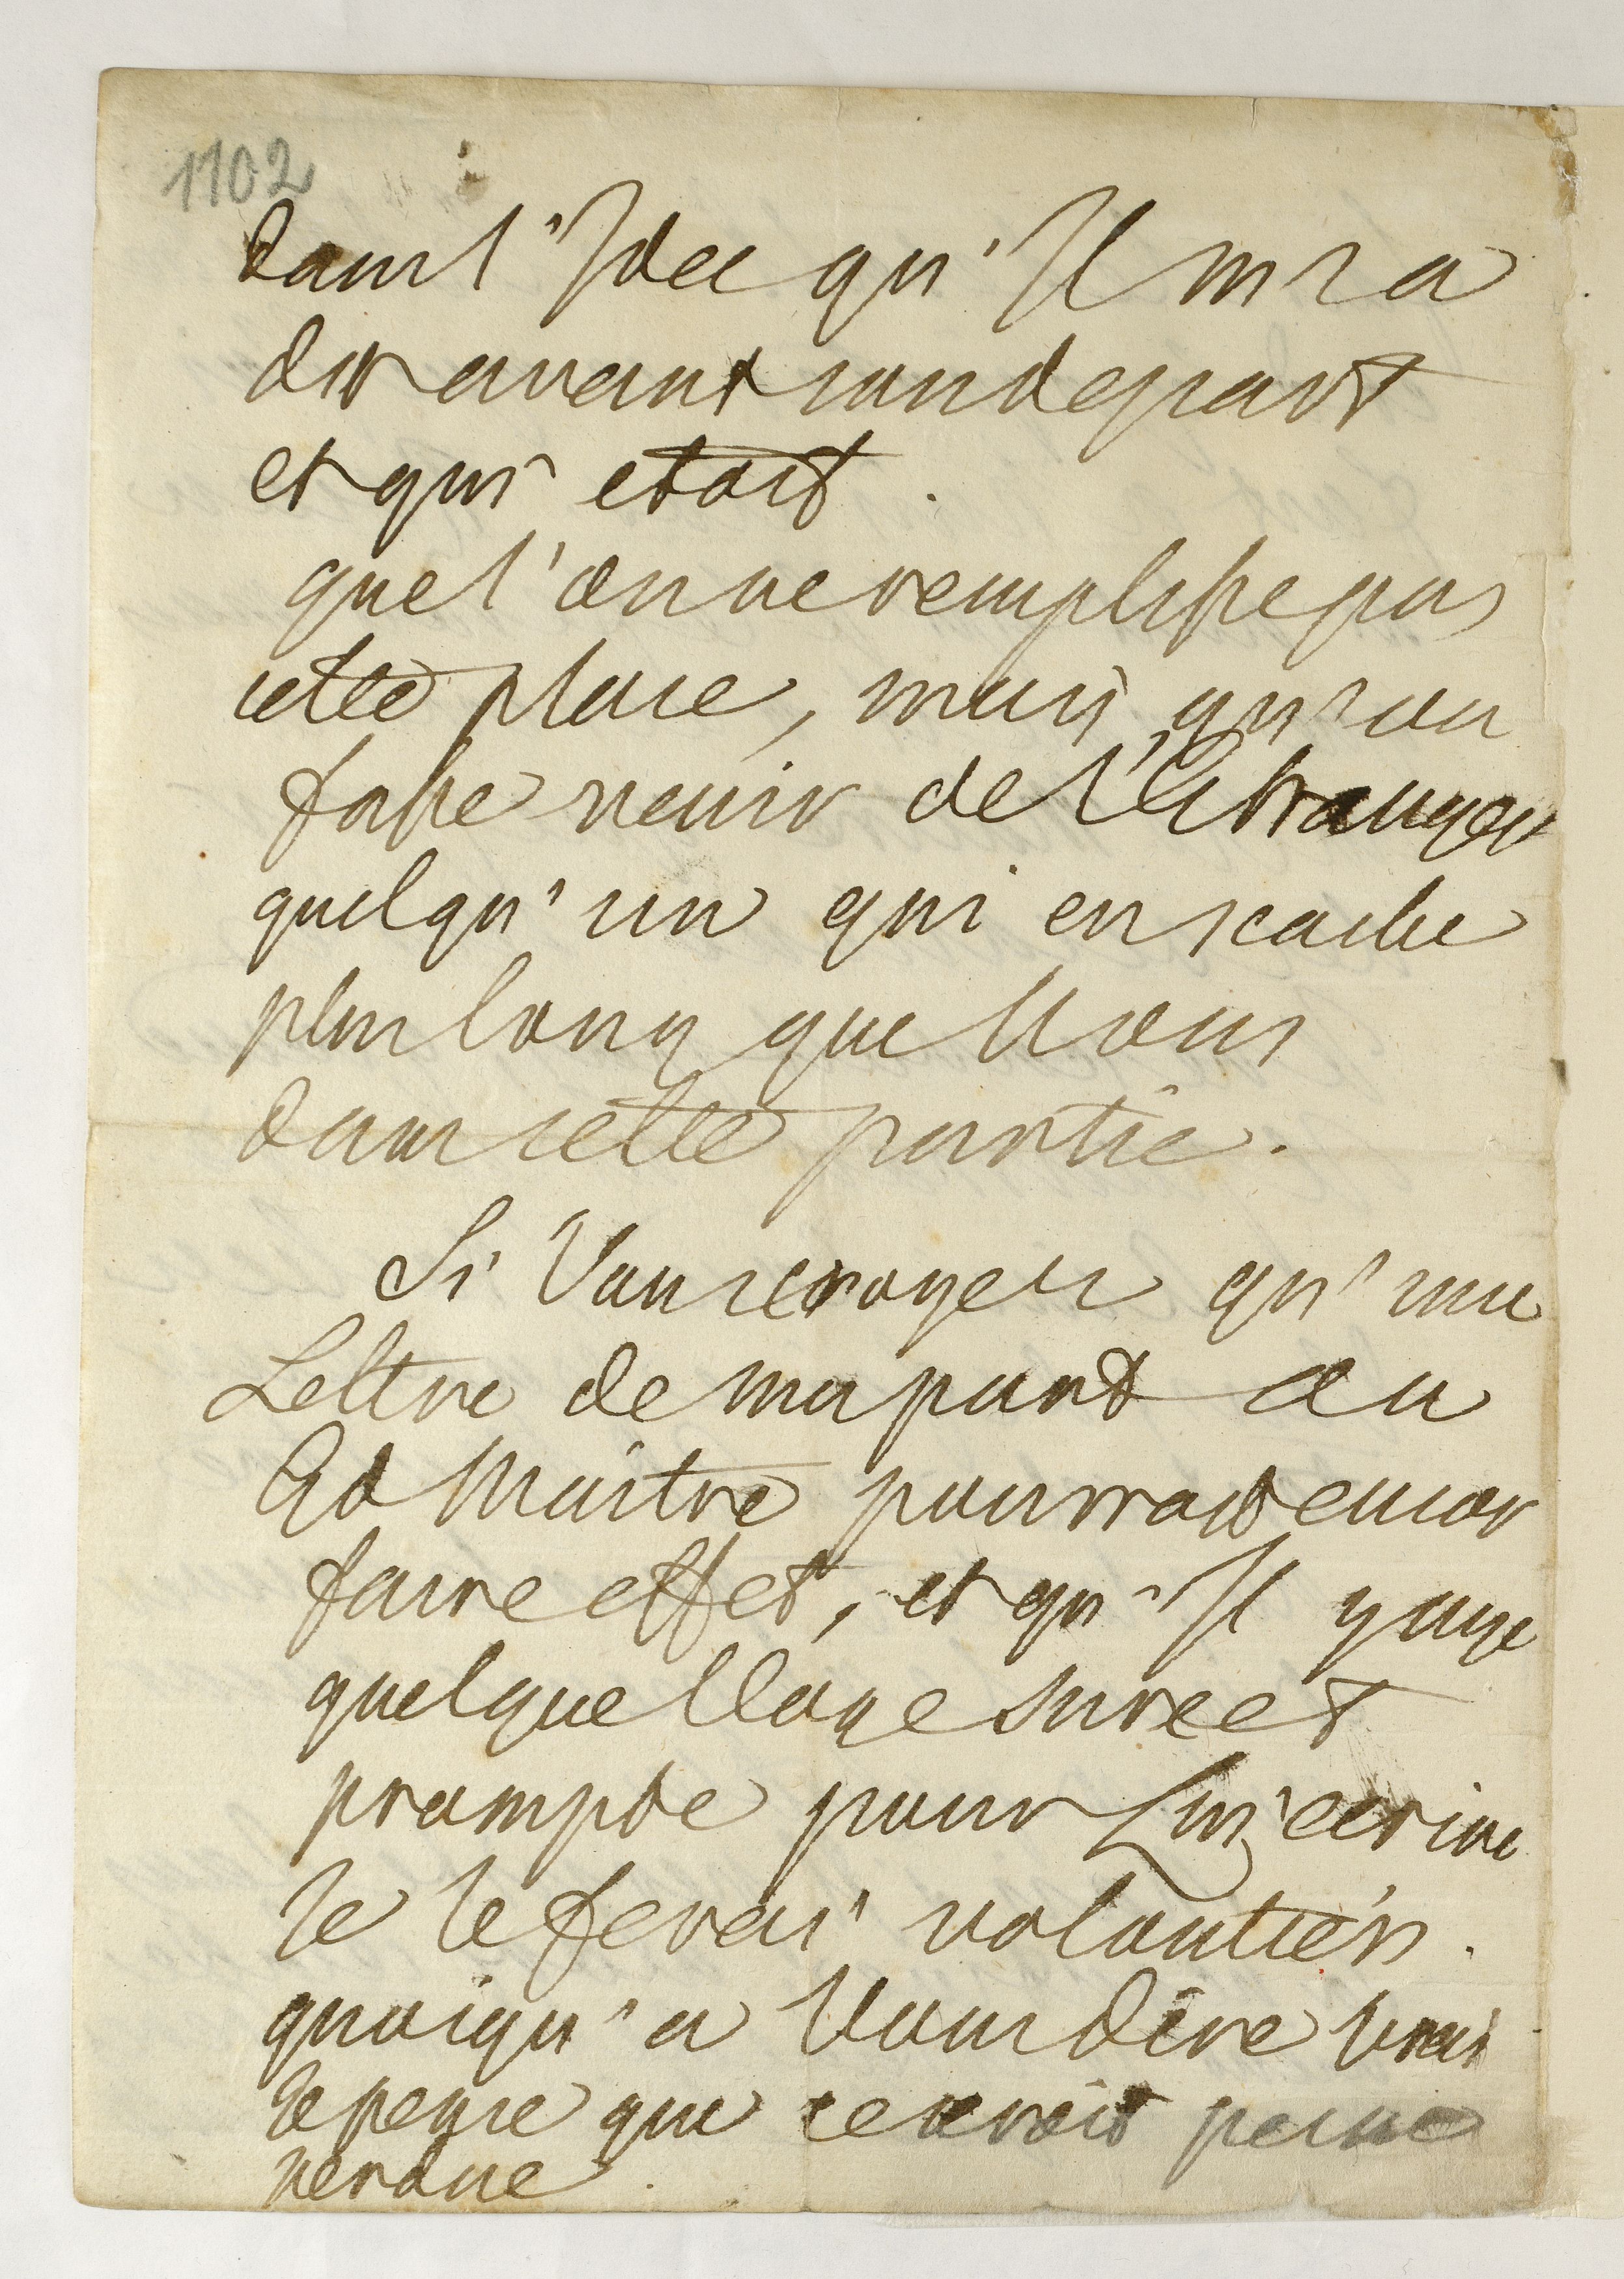 1102
dans l'Idée qu'Il m'a
dit avant son depart
et qui etoit.
que l'on ne remplisse pas
cette place, mais qu'on
fasse venir de l'Etranger
quelqu'un qui en scache
plus long que Nous
dans cette partie.
Si Vous croyez qu'une
Lettre de ma part au
Gd Maitre pourrait encor
faire effet, et qu'Il y aye
quelque Voye sure et
prompte pour Lui ecrire
Je le ferai volontiérs.
quoiqu'a Vous dire vrai
Je pense que ce seroit peine
perdue.